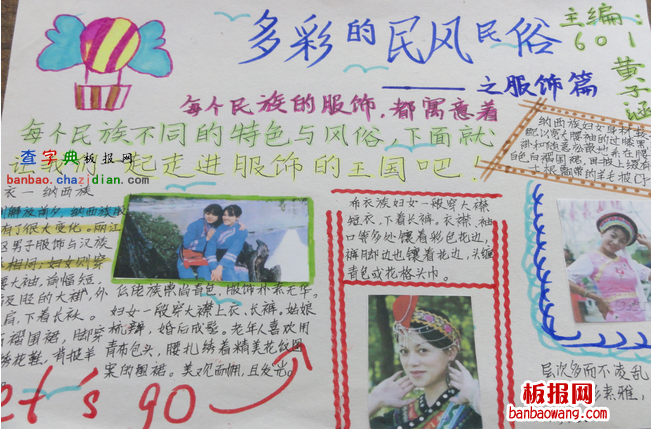 多彩的民风民俗
主编:
601
黄子涵
——之服饰篇
每个民族的服饰,都寓意着
每个民族不同的特色与风俗,下面就
一起走进服饰的王国吧!
查字典板报网
banbao.chazidian.com
衣—纳西族
解放前夕,纳西族服
有了很大变化。丽江
区男子服饰与汉族
相同;妇女则穿
大袖,前幅短,
及胫的大褂,外
肩,下着长袄。
褶围裙,脚穿
绣花鞋,肩披羊
仫佬族崇尚青色,服饰朴素无华。
妇女一般穿大襟上衣,长裤,姑娘
梳辫,婚后成髻。老年人喜欢用
青布包头,腰扎绣着精美花纹图
案的围裙。美观而拥,且发光。
et's go
布衣族妇女一般穿大襟
短衣,下着长裤。衣襟,袖
口等多处镶着彩色花边,
裤脚边也镶着花边,头缠
青色或花格头巾。
纳西族妇女身材
大腰袖的过膝
系在腰
色百褶围裙,田披上缀有
的羊皮披
层次多而不凌乱
素雅,
板报网
banbaowang.com